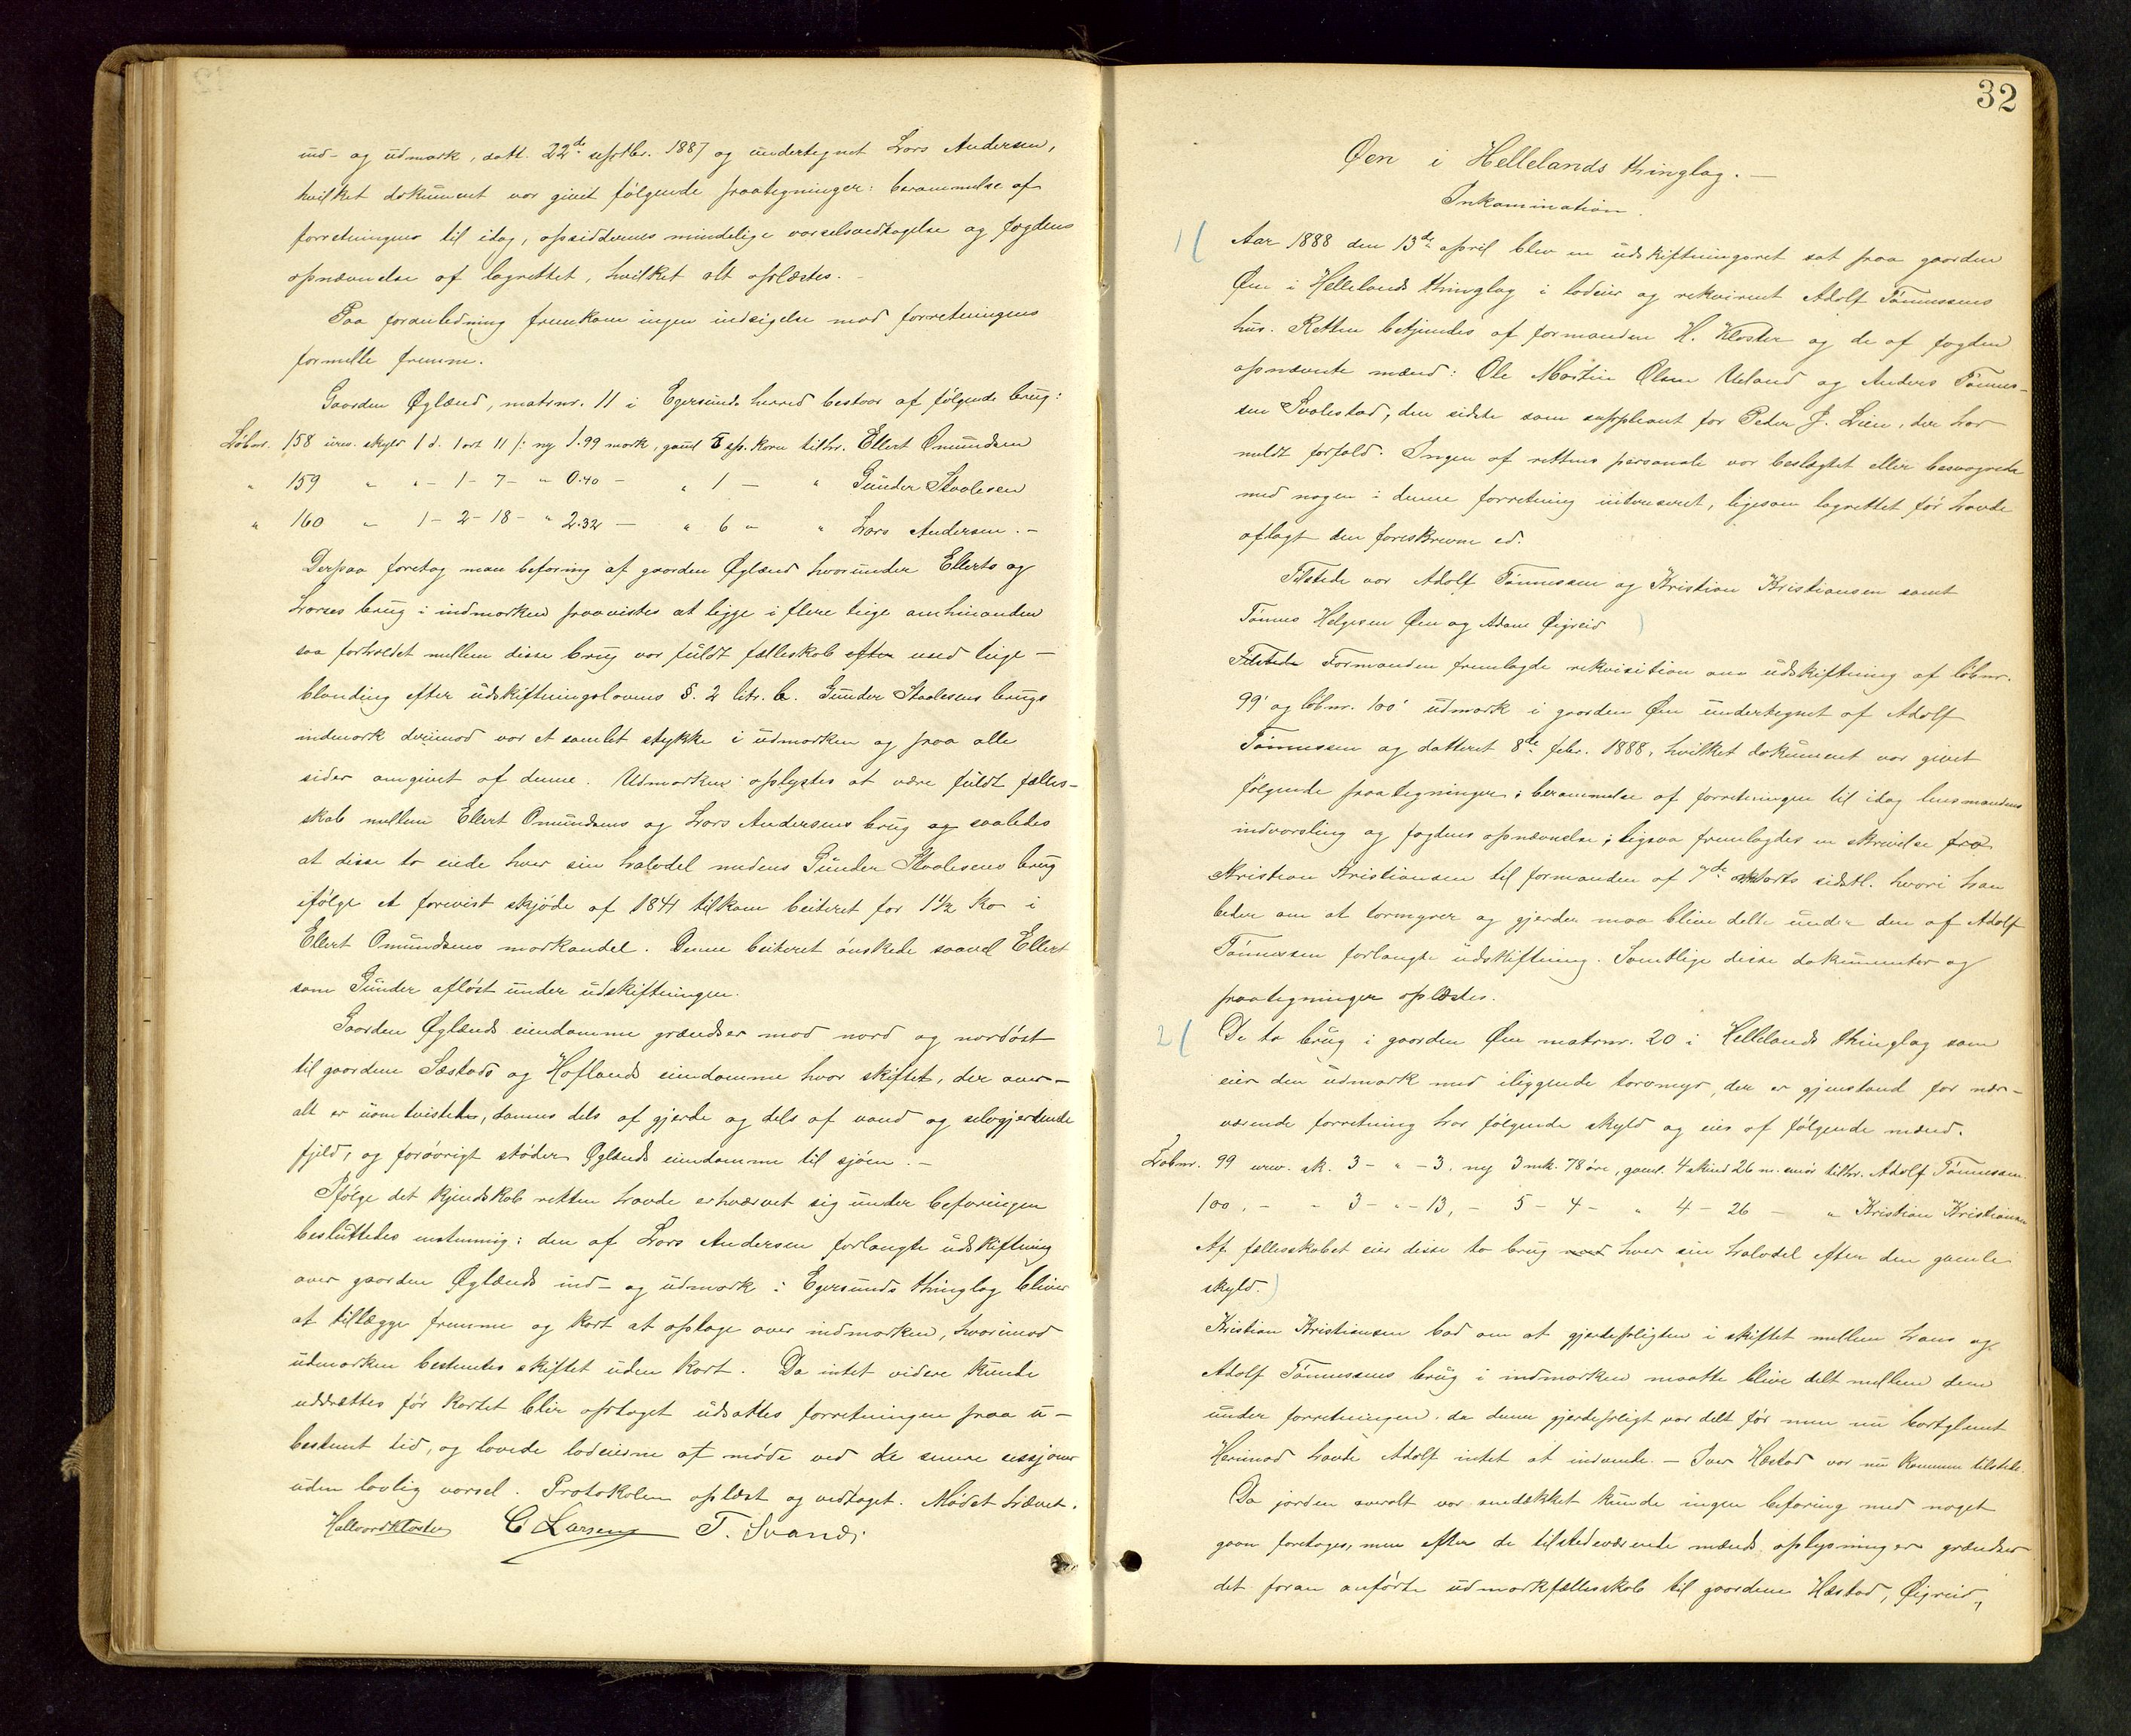 ind- og udmark, datt. 22de septbr. 1887 og undertegnet Lars Andersen,
hvilket dokument var givet følgende paategninger: berammelse af
forretningen til idag, opsiddernes mindelige varselsvedtagelse og fogdens
opnævnelse af lagrettet, hvilket alt oplæstes.-
Paa foranledning fremkom ingen indsigelse mod forretningens
formelle fremme.
Gaarden Øglænd, matrnr. 11 i Egersunds herred bestaar af følgende brug:
Løbnr. 158 urev. skyld 1 d. 1 ort 11 /: ny 1.99 mark, gaml 5 sp. korn tilhr. Ellert Omundsen
" 159 " " - 1 - 7 - " 0.40 - " 1 - " Gunder Staalesen
" 160 " 1 - 2 - 18 - " 2.32 - " 6 " " Lars Andersen.-
Derpaa foretog man befaring af gaarden Øglænd hvorunder Ellerts og
Larses brug i indmarken paavistes at ligge i flere teige om hinanden
saa forholdet mellem disse brug var fuldt fælleskab efter med teige-
blanding efter udskiftningslovens §. 2 litr. b. Gunder Staalesens brugs
indmark derimod var et samlet stykke i udmarken og paa alle
sider omgivet af denne. Udmarken oplystes at være fuldt fælles-
skab mellem Ellert Omundsens og Lars Andersens brug og saaledes
at disse to eiede hver sin halvdel medens Gunder Staalesens brug
ifølge et forevist skjøde af 1841 tilkom beiteret for 1 1/2 ko i
Ellert Omundsens markandel. Denne beiteret ønskede saavel Ellert
som Gunder afløst under udskiftningen.
Gaarden Øglænds eiendomme grændser mod nord og nordøst
til gaardene Sæstads og Hoflands eiendomme hvor skiftet, der over-
alt er uomtvistet, dannes dels af gjerde og dels af vand og selvgjerdende
fjeld, og forøvrigt støder Øglænds eiendomme til sjøen.-
Ifølge det kjendskab retten havde erhvervet sig under befaringen
besluttedes enstemmig: den af Lars Andersen forlangte udskiftning
over gaarden Øglænds ind- og udmark i Egersunds thinglag bliver
at tillægge fremme og kart at optage over indmarken, hvorimod
udmarken bestemtes skiftet uden kart. Da intet videre kunde
udrettes før kartet blir optaget udsattes forretningen paa u-
bestemt tid, og lovede lodeierne at møde ved de senere sessjoner
uden lovlig varsel. Protokolen oplæst og vedtaget. Mødet hævet.
Hallvard Kloster C Larsen T. Svanæs
32
Øen i Hellelands thinglag.-
Inkamination.
1( Aar 1888 den 13de april blev en udskiftningsret sat paa gaarden
Øen i Hellelands thinglag i lodeier og rekvirent Adolf Tønnessens
hus. Retten betjentes af formanden H. Kloster og de af fogden
opnævnte mænd: Ole Martin Olsen Ueland og Anders Tønnes-
sen Svalestad, den sidste som suppleant for Peder J. Lien, der har
meldt forfald. Ingen af rettens personale var beslægtet eller besvogrede
med nogen i denne forretning interesseret, ligesom lagrettet før havde
aflagt den foreskrevne ed.
Tilstede var Adolf Tønnessen og Kristian Kristiansen samt
Tønnes Helgesen Øen og Adam Øigreid )
Tilstede Formanden fremlagde rekvisition om udskiftning af løbnr.
99 og løbnr. 100 udmark i gaarden Øen undertegnet af Adolf
Tønnessen og datteret 8de febr. 1888, hvilket dokument var givet
følgende paategninger: berammelse af forretningen til idag lensmandens
indvarsling og fogdens opnævnelse; ligesaa fremlagdes en skrivelse fra
Kristian Kristiansen til formanden af 7de marts sidstl. hvori han
beder om at tormyrer og gjerder maa blive delte under den af Adolf
Tønnessen forlangte udskiftning. Samtlige disse dokumenter og
paategninger oplæstes.
2( De to brug i gaarden Øen matrnr. 20 i Hellelands thinglag som
eier den udmark med iliggende torvmyr, der er gjenstand for nær-
værende forretning har følgende skyld og eies af følgende mænd.
Løbnr. 99 urev. sk. 3 - " - 3. ny 3 mk. 78 øre, gaml. 4 skind 26 m. smør tilhr. Adolf Tønnessen.
100, - " 3 - " - 13, - 5 - 4 - " 4 - 26 - " Kristian Kristiansen
Af fællesskabet eier disse to brug med hver sin halvdel efter den gamle
skyld. )
Kristian Kristiansen bad om at gjerdepligten i skiftet mellem hans og
Adolf Tønnessens brug i indmarken maatte blive delt mellem dem
under forretningen, da denne gjerdepligt var delt før men nu bortglemt
Herimod havde Adolf intet at indvende. - Iver Hæstad var nu kommen tilstede.
Da jorden overalt var snedækket kunde ingen befaring med noget
gavn foretages, men efter de tilstedeværende mænds oplysninger grændser
det foran anførte udmarkfælleskab til gaardene Hæstad, Øigreid,